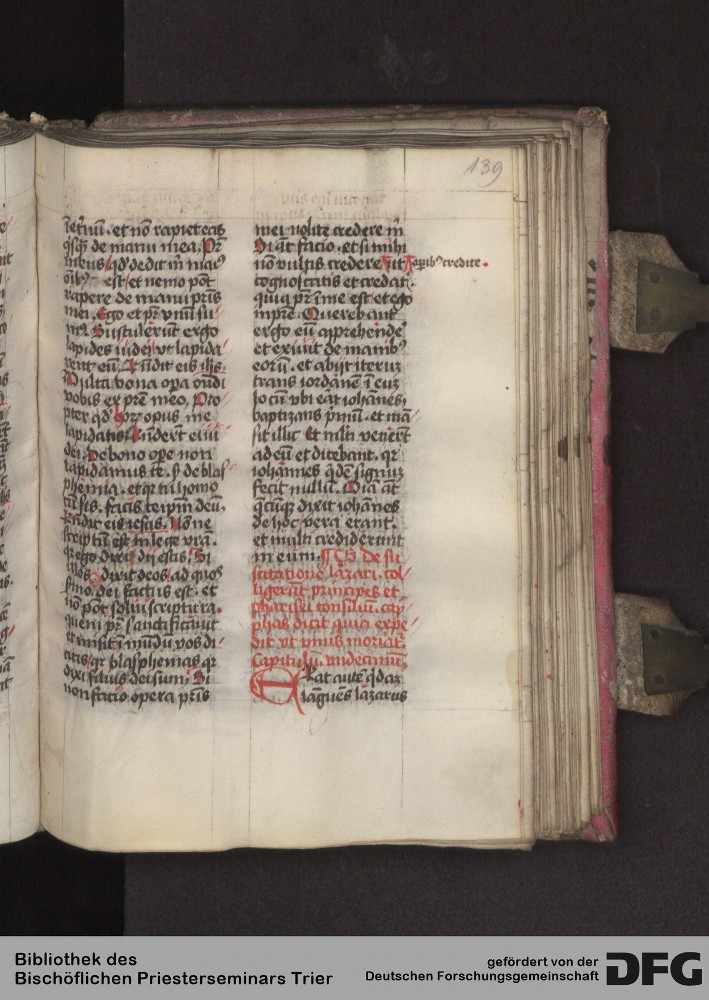 139
et̄nū. et nō rapiet eas
q̄sq̄ de manu mea. Pr̄
meus qd̄ dedit m̄ mai⁹
oīb⁹ est. et nemo pōt
rapere de manu pr̄is
mei. Ego et pr̄ vnū su
m⁹. Sustulerūt ergo
lapides iudei vt lapida
rent eū. Rn̄dit eis ih̄s.
Multa bona opa on̄di
vobis ex pr̄e meo. Pro
pter qd̄ eoꝝ opus me
lapidatis. Rn̄dert̄ ei iu
dei. De bono ope non
lapidamus te. s̄ de blas
phemia. et qr tu homo
cū sis. facis teip̄m deū.
Rn̄dit eis iesus. Nōne
scriptū est in lege vr̄a.
qr ego dixi dii estis. Si
illos dixit deos. ad quos
s̄mo dei factus est. et
nō pōt solui scriptura.
quem pr̄ sanctificauit
et misit ī mūdū vos di
citis qr blasphemas qr
dixi filius dei sum. Si
non facio opera pr̄is
mei nolite credere m̄
Si aūt facio. et si mihi
nō vultis credere ut
opib⁹ credite.
cognoscatis et credat̄.
quia pr̄ ī me est et ego
in pr̄e. Querebant
ergo eū apprehende͛
et exiuit de manib⁹
eorū. et abijt iterū
trans iordanē ī eū
locū vbi erat iohānes
baptizans p̄mū. et mā
sit illic. Et m̄lti venert̄
ad eū et dicebant. qr
iohannes qd̄e signū
fecit nullū. Oīa aūt
q̄cūq̄ dixit iohānes
de hoc vera erant.
et multi crediderunt
in eum. De su
scitatione lazari. col
ligerūt principes et
pharisei consiliū. cay
phas dicit quia expe
dit vt vnus moriat̄
Capitulū vndecimū
Erat autē q̄daz
lāguēs lazarus
Bibliothek des
Bischöflichen Priesterseminars Trier
gefördert von der
Deutschen Forschungsgemeinschaft
DFG